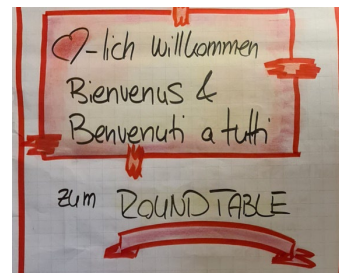 ❤-lich willkommen
Bienvenus &
Benvenuti a tutti
zum ROUNDTABLE